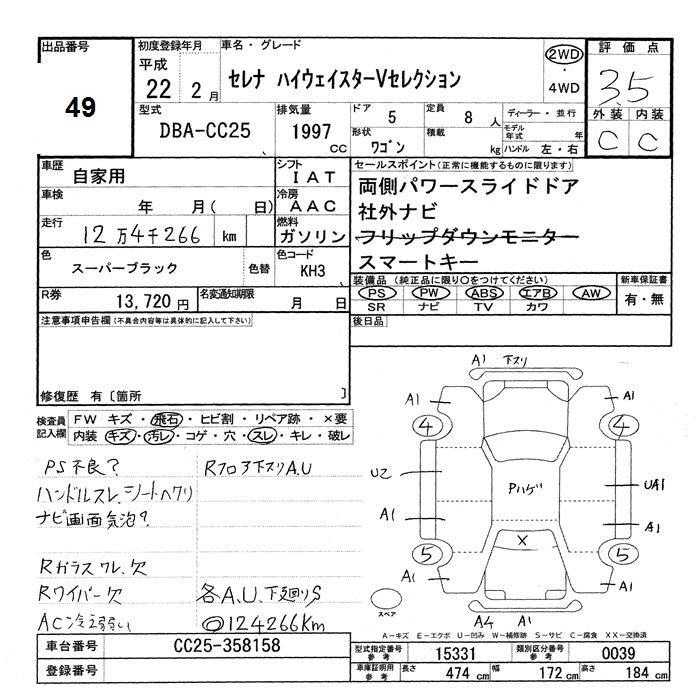 出品番号
49
初度登録年月
平成
22 2 月
車名・グレード
セレナ ハイウェイスターVセレクション
2WD
・
4WD
評価点
3.5
外装 内装
C C
型式
DBA-CC25
排気量
1997
CC
ドア 5
定員 8 人
ディーラー・並行
形状
ワゴン
積載
kg
モデル年式 年
ハンドル 左・右
車歴
自家用
シフト
IAT
車検
年 月( 日)
冷房
AAC
走行
12 万4千266 km
燃料
ガソリン
色
スーパーブラック
色替
色コード
KH3
R券
13,720 円
名変通知期限
月 日
セールスポイント(正常に機能するものに限ります)
両側パワースライドドア
社外ナビ
フリップダウンモニター
スマートキー
装備品(純正品に限り○をつけてください)
PS PW ABS エアB AW
SR ナビ TV カワ
新車保証書
有・無
後日品
注意事項申告欄(不具合内容等は具体的に記入して下さい)
修復歴 有〔箇所 〕
検査員記入欄
FW キズ・飛石・ヒビ割・リペア跡・×要
内装 キズ・汚レ・コゲ・穴・スレ・キレ・破レ
PS不良?
ハンドルスレ、シートヘタリ
ナビ画面気泡?
Rガラスワレ、欠
Rワイパー欠
AC冷え弱い
Rフロア下スリA.U
各A.U.下廻りS
◎124266Km
A1 下スリ
A1 A1
4 4
U2 Pハゲ UA1
A1 A1
5 × 5
A1 A1
スペア
A4 A1
A-キズ E-エクボ U-凹み W-補修跡 S-サビ C-腐食 XX-交換済
車台番号
CC25-358158
登録番号
型式指定番号 参考 15331
類別区分番号 参考 0039
車庫証明用 参考 長さ 474 cm 幅 172 cm 高さ 184 cm